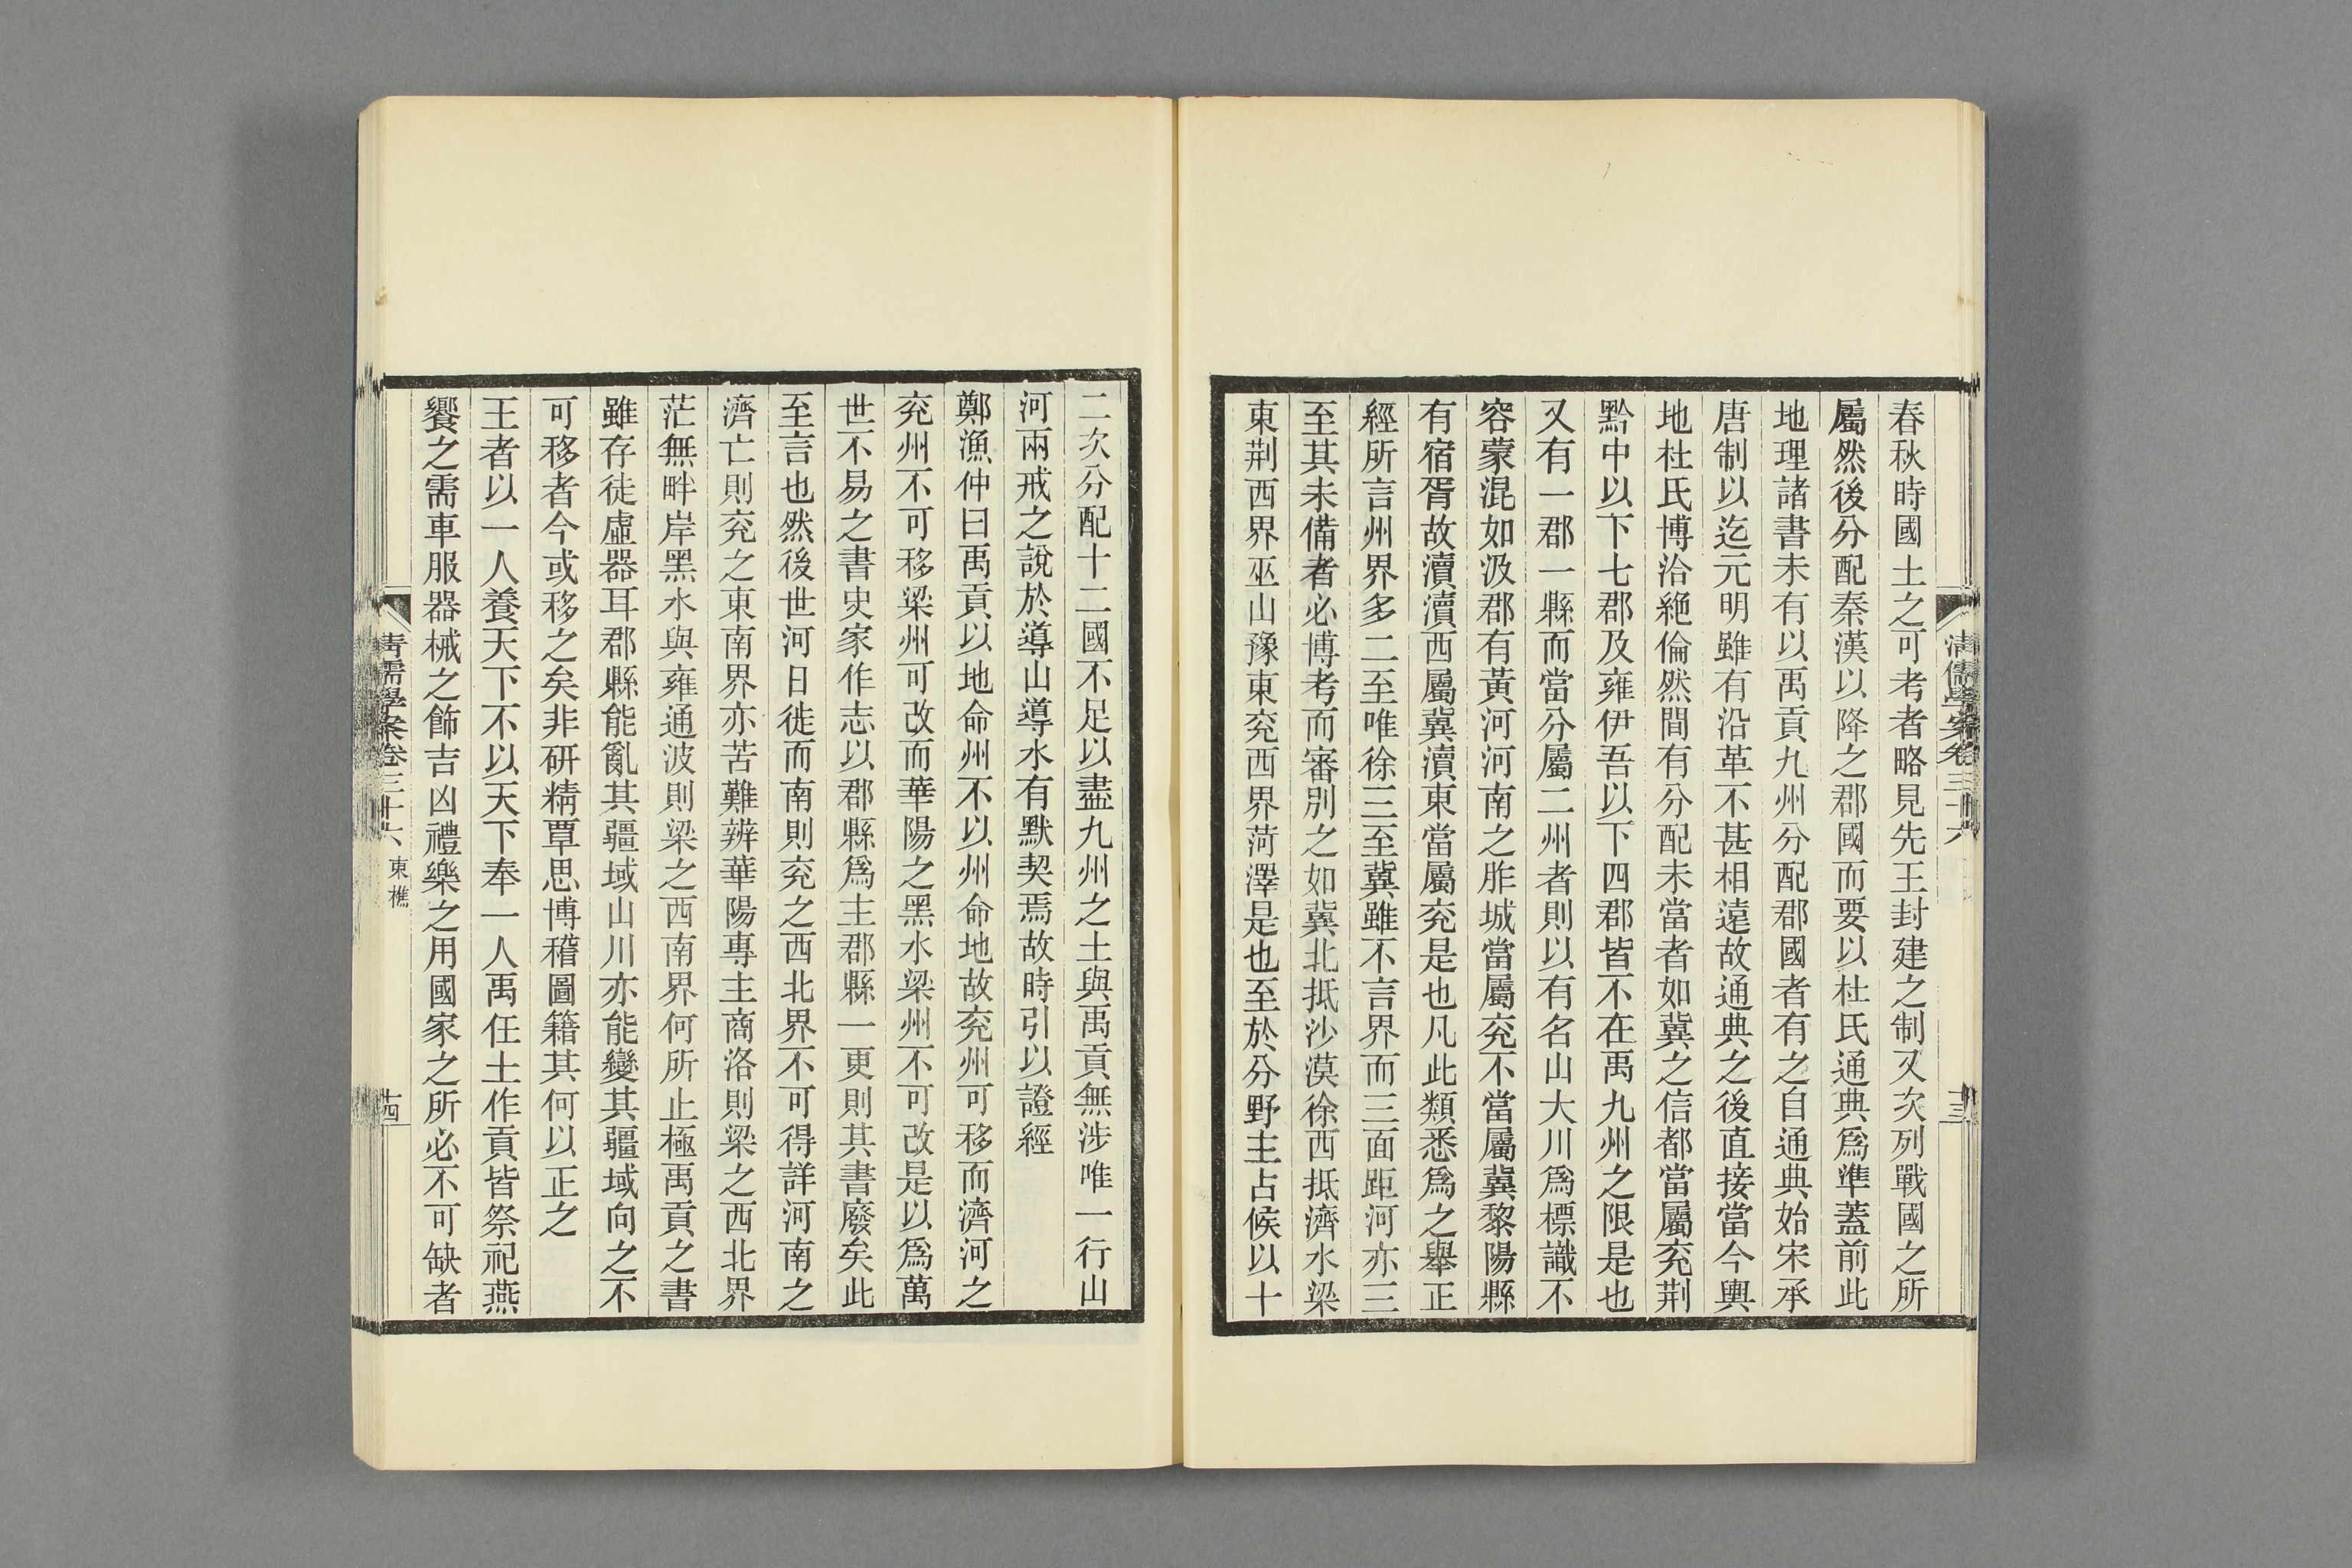 清儒學案卷三十六
十三
春秋時國土之可考者略見先王封建之制又次列戰國之所
屬然後分配秦漢以降之郡國而要以杜氏通典爲準蓋前此
地理諸書未有以禹貢九州分配郡國者有之自通典始宋承
唐制以迄元明雖有沿革不甚相遠故通典之後直接當今輿
地杜氏博洽絕倫然間有分配未當者如冀之信都當屬兗荆
黔中以下七郡及雍伊吾以下四郡皆不在禹九州之限是也
又有一郡一縣而當分屬二州者則以有名山大川爲標識不
容蒙混如汲郡有黃河河南之胙城當屬兗不當屬冀黎陽縣
有宿胥故瀆瀆西屬冀瀆東當屬兗是也凡此類悉爲之舉正
經所言州界多二至唯徐三至冀雖不言界而三面距河亦三
至其未備者必博考而審別之如冀北抵沙漠徐西抵濟水梁
東荆西界巫山豫東兗西界菏澤是也至於分野主占候以十
二次分配十二國不足以盡九州之土與禹貢無涉唯一行山
河兩戒之說於導山導水有默契焉故時引以證經
鄭漁仲曰禹貢以地命州不以州命地故兗州可移而濟河之
兗州不可移梁州可改而華陽之黑水梁州不可改是以爲萬
世不易之書史家作志以郡縣爲主郡縣一更則其書廢矣此
至言也然後世河日徙而南則兗之西北界不可得詳河南之
濟亡則兗之東南界亦苦難辨華陽專主商洛則梁之西北界
茫無畔岸黑水與雍通波則梁之西南界何所止極禹貢之書
雖存徒虛器耳郡縣能亂其疆域山川亦能變其疆域向之不
可移者今或移之矣非研精覃思博稽圖籍其何以正之
王者以一人養天下不以天下奉一人禹任土作貢皆祭祀燕
饗之需車服器械之飾吉凶禮樂之用國家之所必不可缺者
清儒學案卷三十六 東樵
十四